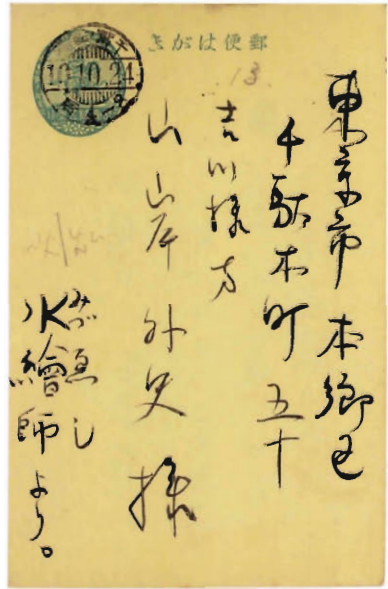 郵便はがき
10.10.24
13
東京市本郷区
千駄木町五十
吉川様方
山岸外史様
みづゑし
水繪師より。